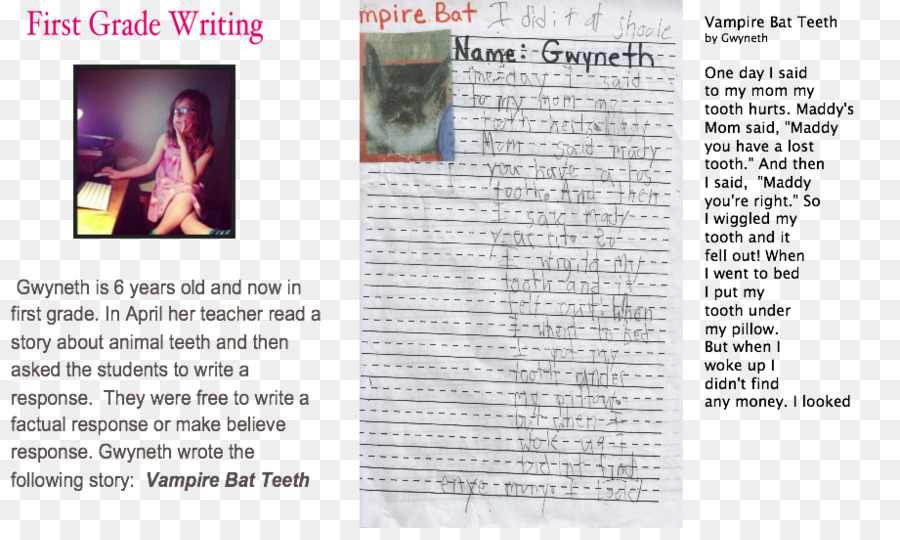 First Grade Writing
Gwyneth is 6 years old and now in
first grade. In April her teacher read a
story about animal teeth and then
asked the students to write a
response. They were free to write a
factual response or make believe
response. Gwyneth wrote the
following story: Vampire Bat Teeth
mpire Bat I did it at
Name: Gwyneth
day I said
to my mom my
tooth
Mom said mady
you have a los
tooth. And then
I said mady
So
I my
tooth and it
fell out. When
I when to bed
I my
tooth under
my
but when I
woke up I
find
I
Vampire Bat Teeth
by Gwyneth
One day I said
to my mom my
tooth hurts. Maddy's
Mom said, "Maddy
you have a lost
tooth." And then
I said, "Maddy
you're right." So
I wiggled my
tooth and it
fell out! When
I went to bed
I put my
tooth under
my pillow.
But when I
woke up I
didn't find
any money. I looked